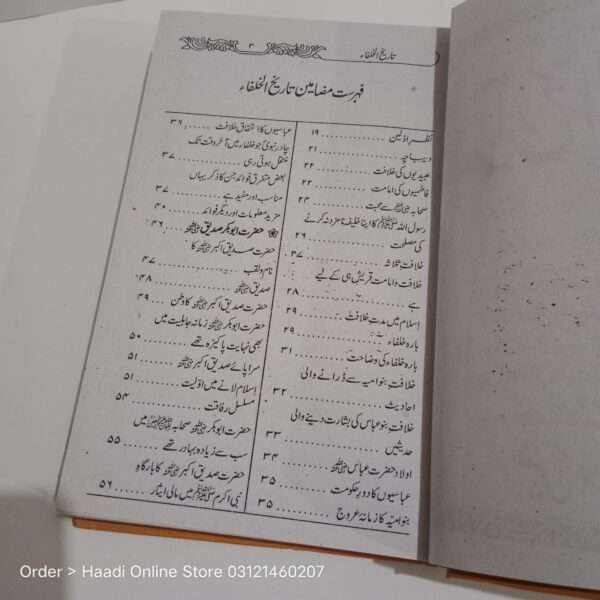 تاریخ الخلفاء
۳
فہرست مضامین تاریخ الخلفاء
نظر اوّلین ۱۹
دیباچہ ۲۱
عبیدیوں کی خلافت ۲۲
فاطمیوں کی امامت ۲۲
صحابہ ﷺ سے محبت ۲۴
رسول اللہ ﷺ کا اپنا خلیفہ نامزد نہ کرنے
کی مصلحت ۲۶
خلافت ثلاثہ ۲۷
خلافت و امامت قریش ہی کے لیے
ہے ۲۸
اسلام میں مدت خلافت ۲۹
بارہ خلفاء ۲۹
بارہ خلفاء کی وضاحت ۳۱
خلافت بنو امیہ سے ڈرانے والی
احادیث ۳۲
خلافت بنو عباس کی بشارت دینے والی
حدیثیں ۳۳
اولاد حضرت عباس ۳۴
عباسیوں کا دور حکومت ۳۵
بنو امیہ کا زمانۂ عروج ۳۵
عباسیوں کا استحقاق خلافت ۳۶
چادر نبوی جو خلفاء میں آخر وقت تک
منتقل ہوتی رہی ۳۷
بعض متفرق فوائد جن کا ذکر یہاں
مناسب اور مفید ہے ۳۷
مزید معلومات اور دیگر فوائد ۴۰
حضرت ابوبکر صدیق ۴۶
حضرت صدیق اکبر کا
نام و لقب ۴۷
صدیق ۴۸
حضرت صدیق اکبر کا وطن ۴۹
حضرت ابوبکر زمانہ جاہلیت میں
بھی نہایت پاکیزہ تھے ۵۰
سراپائے صدیق اکبر ۵۱
اسلام لانے میں اوّلیت ۵۱
مسلسل رفاقت ۵۴
حضرت ابوبکر صحابہ میں
سب سے زیادہ بہادر تھے ۵۵
حضرت صدیق اکبر کا بارگاہ
نبی اکرم ﷺ میں مالی ایثار ۵۶
Order > Haadi Online Store 03121460207